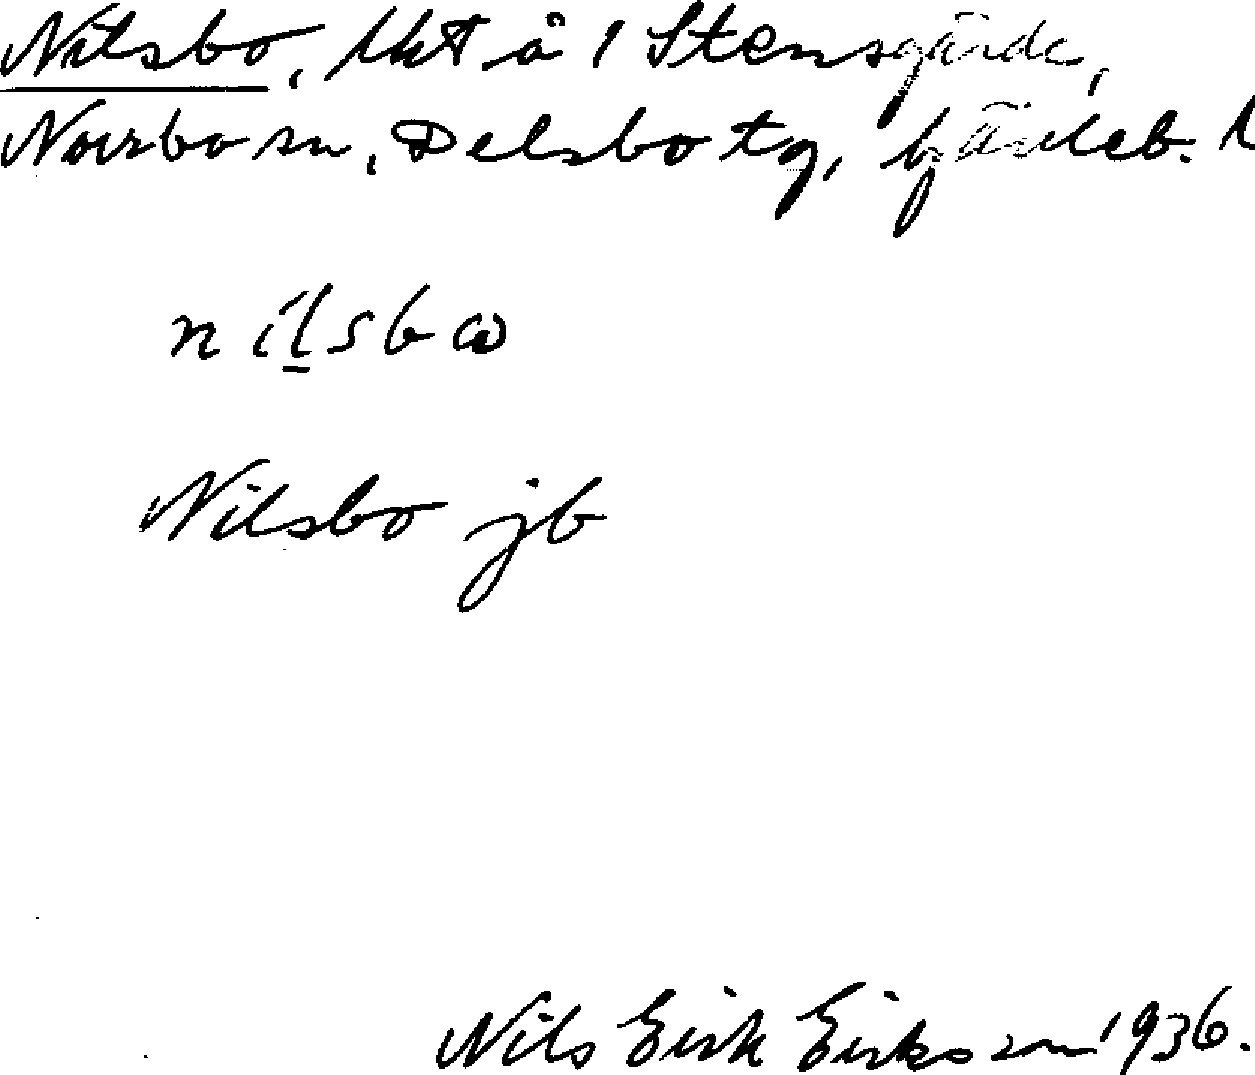 Nilsbo, lht å 1 Stensgärde,
Norrbo sn, Delsbo tg, Gävleb. l
nilsbω
Nilsbo jb
Nils Erik Eriksson 1936.